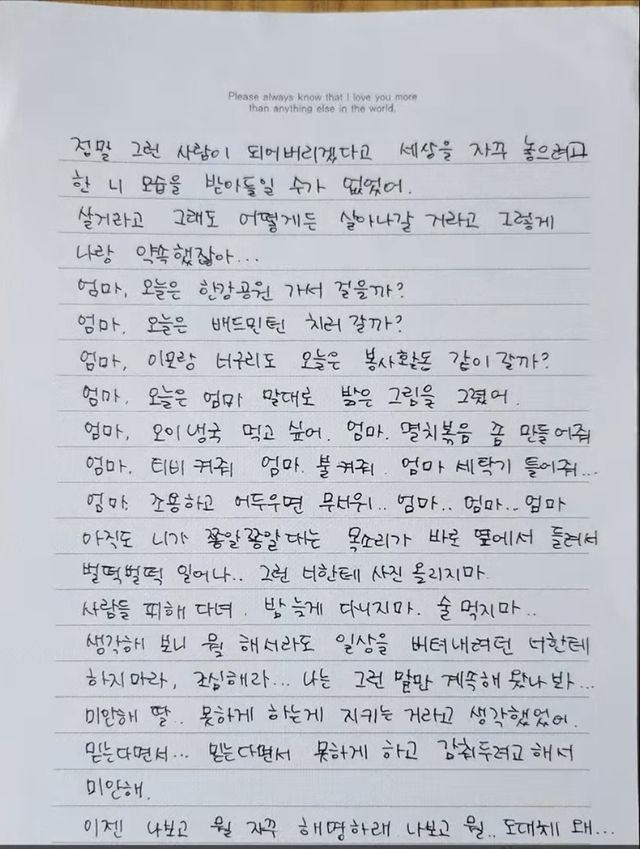 Please always know that I love you more
than anything else in the world.
정말 그런 사람이 되어버리겠다고 세상을 자꾸 놓으려고
한 니 모습을 받아들일 수가 없었어.
살거라고 그래도 어떻게든 살아나갈 거라고 그렇게
나랑 약속했잖아...
엄마, 오늘은 한강공원 가서 걸을까?
엄마. 오늘은 배드민턴 치러 갈까?
엄마, 이모랑 너구리도 오늘은 봉사활동 같이 갈까?
엄마. 오늘은 엄마 말대로 밝은 그림을 그렸어.
엄마, 오이냉국 먹고 싶어. 엄마. 멸치볶음 쫌 만들어줘
엄마. 티비 켜줘 엄마. 불 켜줘. 엄마 세탁기 틀어줘...
엄마. 조용하고 어두우면 무서워.. 엄마.. 엄마.. 엄마
아직도 니가 쫑알쫑알대는 목소리가 바로 옆에서 들려서
벌떡벌떡 일어나.. 그런 너한테 사진 올리지마.
사람들 피해 다녀. 밤 늦게 다니지마. 술 먹지마..
생각해 보니 뭘 해서라도 일상을 버텨내려던 너한테
하지마라, 조심해라... 나는 그런 말만 계속해 왔나봐...
미안해 딸.. 못하게 하는게 지키는 거라고 생각했었어.
믿는다면서... 믿는다면서 못하게 하고 감춰두려고 해서
미안해.
이젠 나보고 뭘 자꾸 해명하래 나보고 뭘.. 도대체 왜...